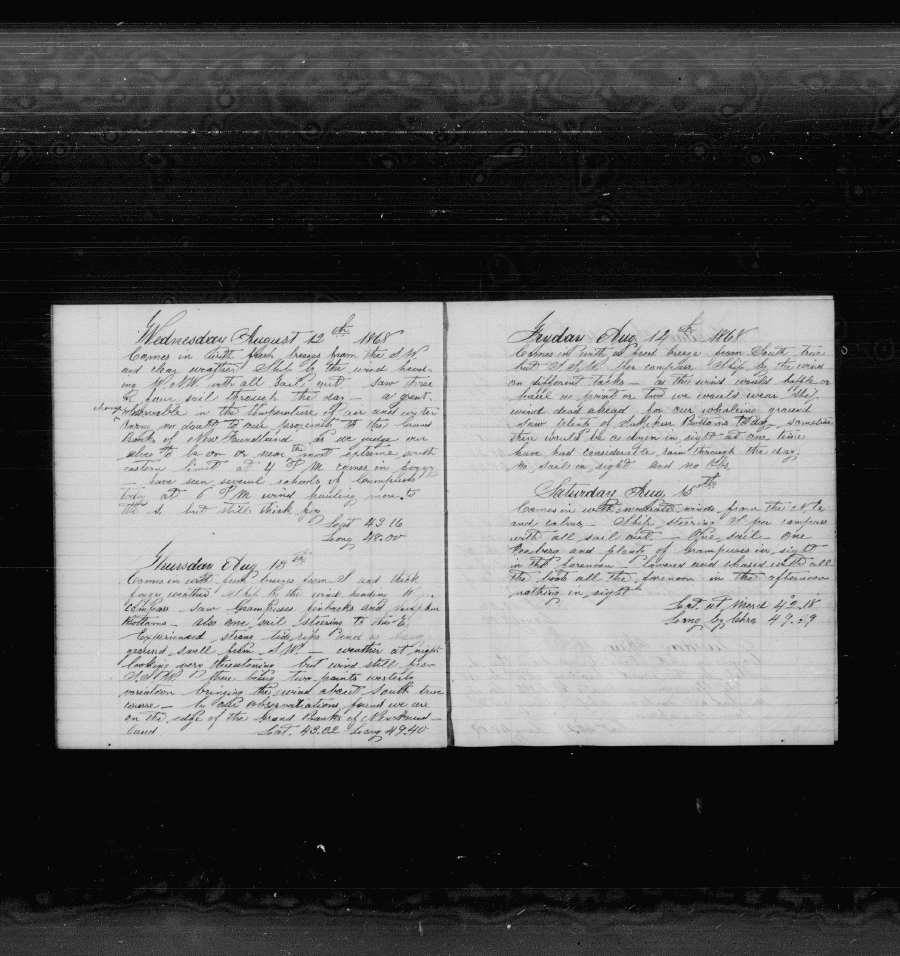 Wednesday August 12th 1868
Comes in with fresh breezes from the S W
and clear weather Ship by the wind head-
ing W N W with all sail out saw three
or four sail through the day - a great
change observable in the temperature of air and water
owing no doubt to our proximity to the Grand
Banks of New Foundland as we judge our
selves to be on or near the most extreme south
eastern limit at 4 P M comes in foggy
- have seen several schools of Grampuses
to day at 6 P M wind hauling more to
the S. but still thick fog
Lat 43 16
Long 48.00
Thursday Aug 13th
Comes in with fresh breezes from S and thick
foggy weather Ship by the wind heading W
compass - saw Grampuses finbacks and
Bottoms - also one sail steering to the E
Experienced strong tide rips and a heavy
ground swell from S W. - weather at night
looking very threatening but wind still from
S S W there being two points westerly
variation bringing the wind about South true
course - by our observations found we are
on the edge of the Grand Banks of New Found -
land Lat. 43.02 Long 49.40
Fryday Aug 14th 1868
Comes in with a fresh breeze from South true
but S S W per compass Ship by the wind
on different tacks - as the wind would baffle or
haul a point or two we would wear ship
wind dead ahead for our whaleing ground
saw plenty of Bottoms to day sometimes
ther would be a dozen in sight at one time
have had considerable rain through the day.
No sail in sight and no Obs
Saturday Aug 15th
Comes in with moderate winds from the N E
and calms - Ship steering per compass
with all sail out - One sail - One
Iceberg and plenty of Grampuses in sight
in the forenoon lowered and chased with all
the boats all the forenoon in the afternoon
nothing in sight
Lat. at Merd 42.18
Long by Chro 49.59